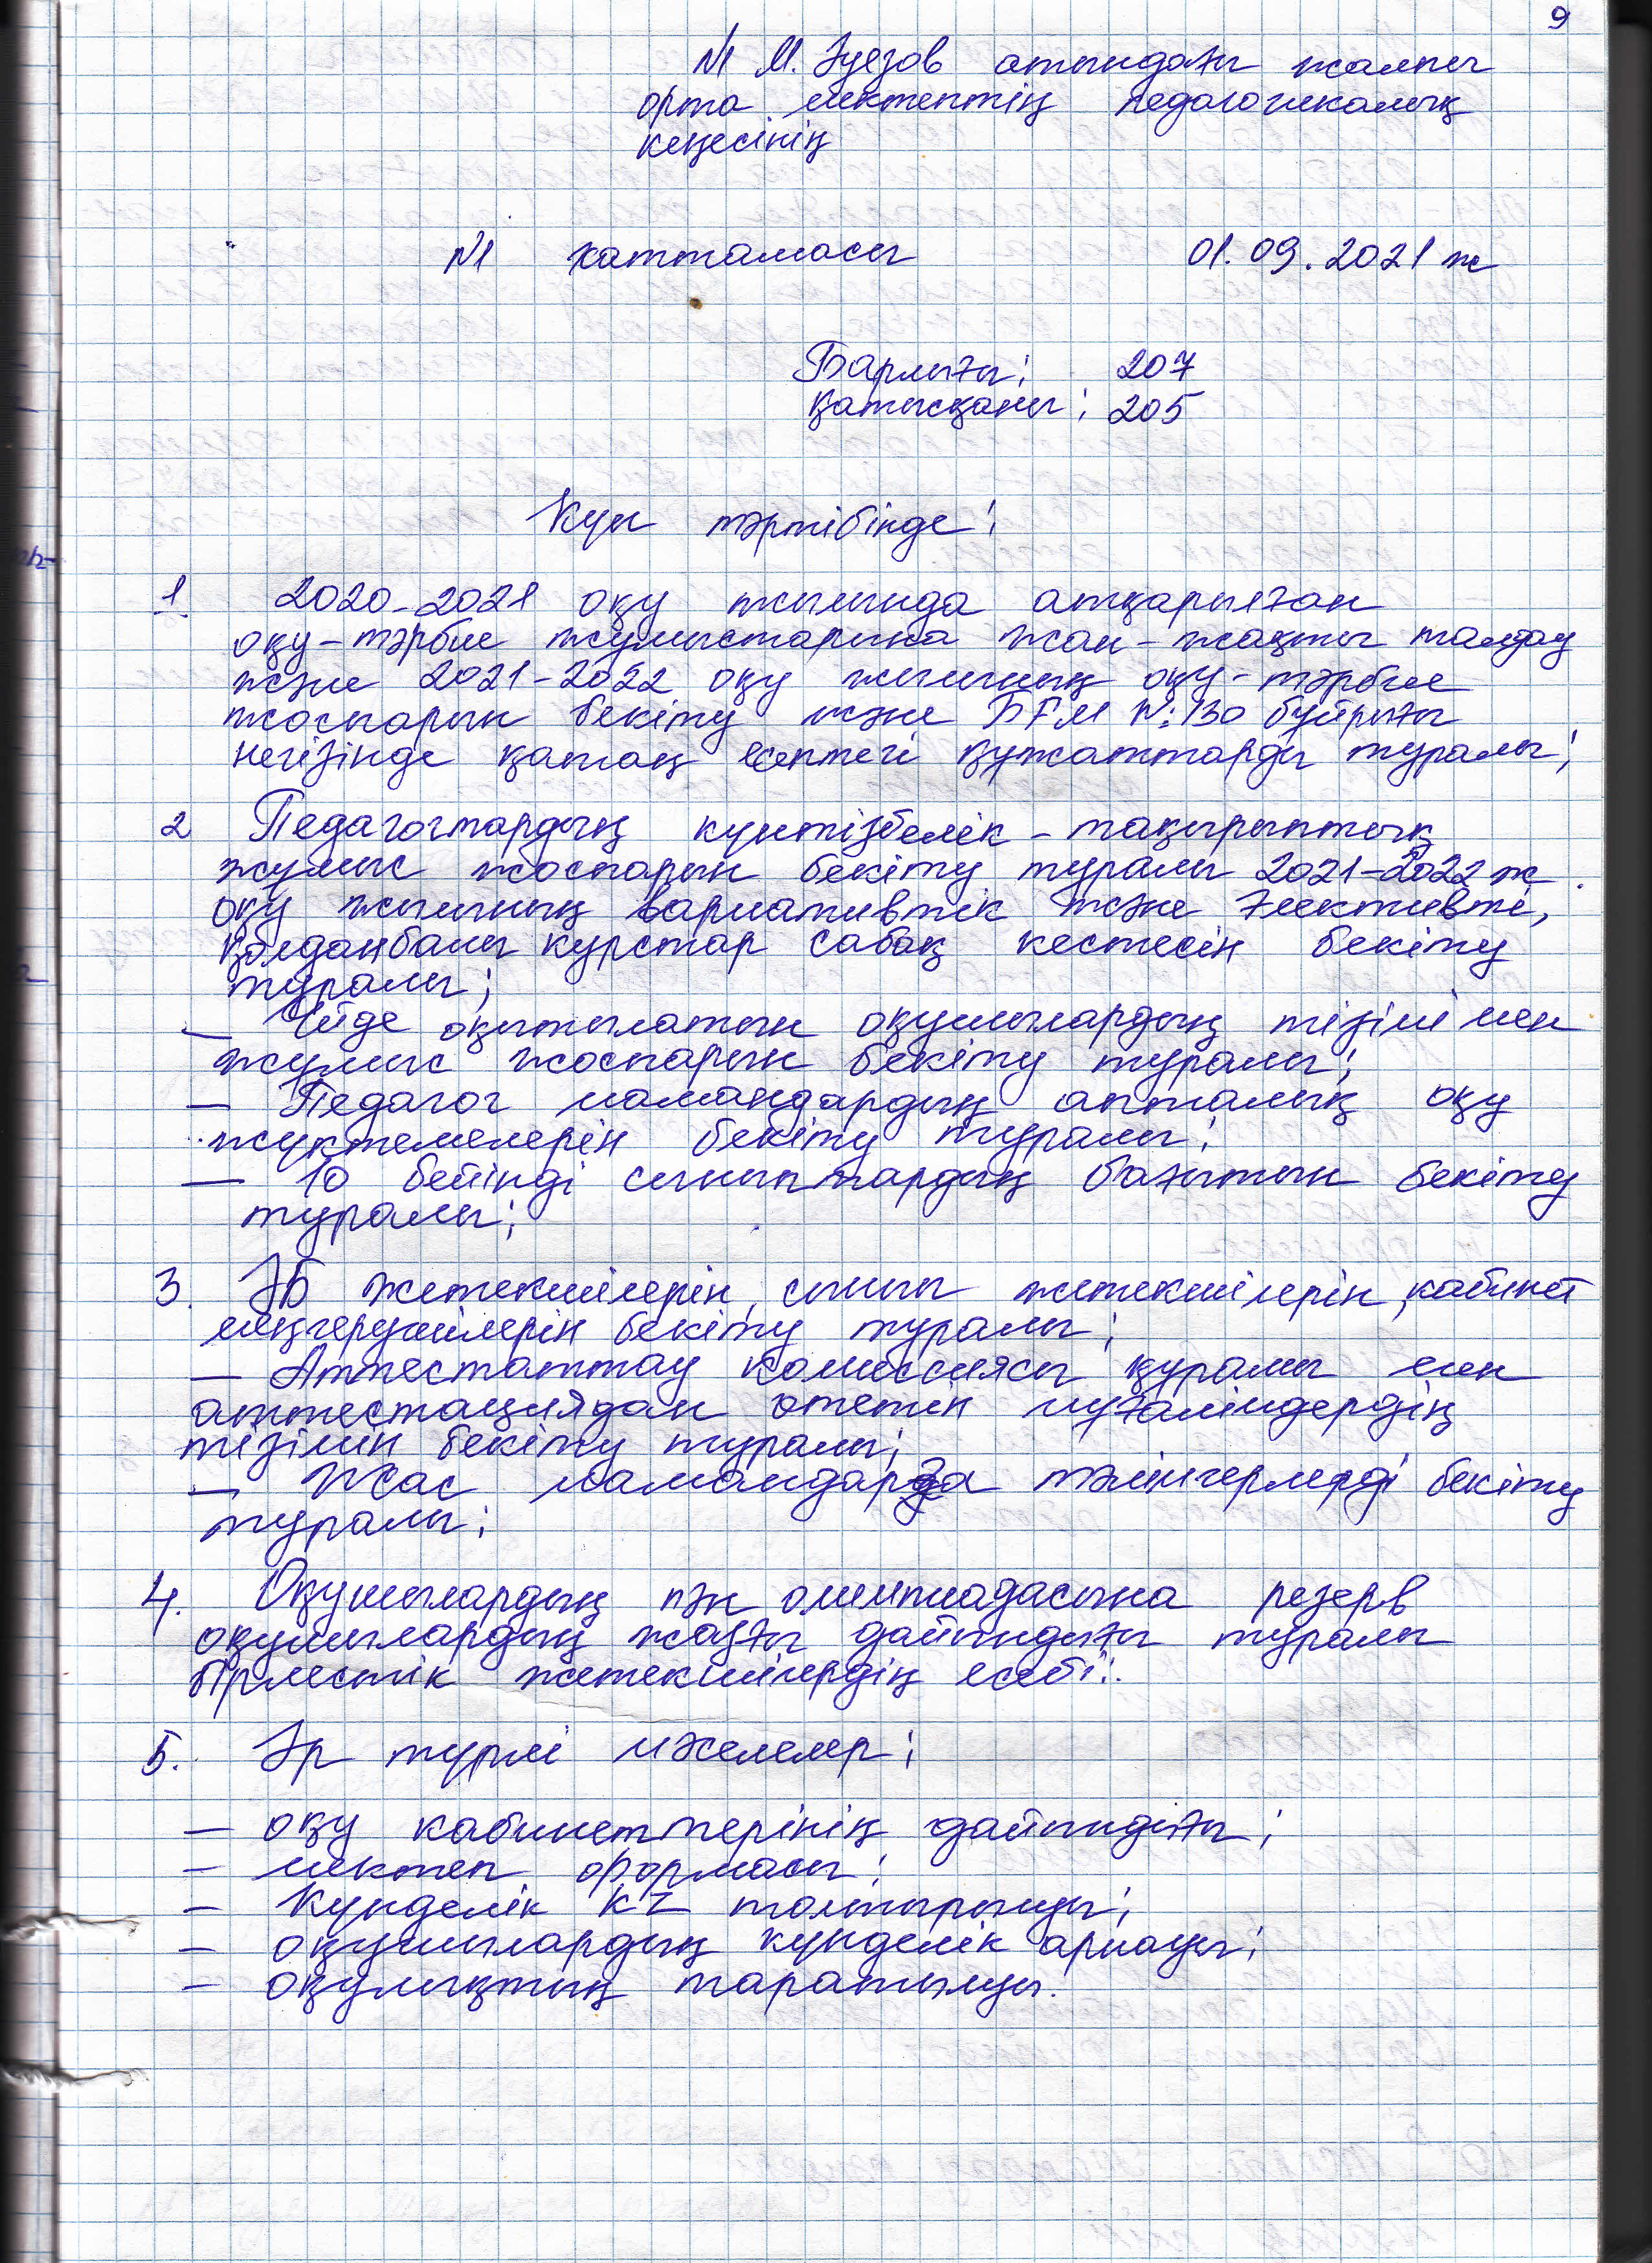 9
№1 М. Әуезов атындағы жалпы
орта мектептің педагогикалық
кеңесінің
№1 хаттамасы 01.09.2021 ж
Барлығы: 207
Қатысқаны: 205
Күн тәртібінде:
1. 2020-2021 оқу жылында атқарылған
оқу-тәрбие жұмыстарына жан-жақты талдау
және 2021-2022 оқу жылының оқу-тәрбие
жоспарын бекіту және БҒМ №:130 бұйрығы
негізінде қатаң есептегі құжаттарды туралы;
2 Педагогтардың күнтізбелік-тақырыптық
жұмыс жоспарын бекіту туралы 2021-2022 ж.
оқу жылының вариативтік және Элективті,
Қолданбалы курстар сабақ кестесін бекіту
туралы;
— Үйде оқытылатын оқушылардың тізімі мен
жұмыс жоспарын бекіту туралы;
— Педагог мамандардың апталық оқу
жүктемелерін бекіту туралы;
— 10 бейінді сыныптардың бағытын бекіту
туралы;
3. ӘБ жетекшілерін, сынып жетекшілерін, кабинет
меңгерушілерін бекіту туралы;
— Аттестаттау комиссиясы құрамы мен
аттестациядан өтетін мұғалімдердің
тізімін бекіту туралы;
— Жас мамандарға тәлімгерлерді бекіту
туралы;
4. Оқушылардың пән олимпиадасына резерв
оқушылардың жазғы дайындығы туралы
бірлестік жетекшілердің есебі:.
5. Әр түрлі мәселелер;
— оқу кабинеттерінің дайындығы;
— мектеп формасы;
— Күнделік KZ толтырылуы;
— оқушылардың күнделік арнауы;
— оқулықтың таратылуы.